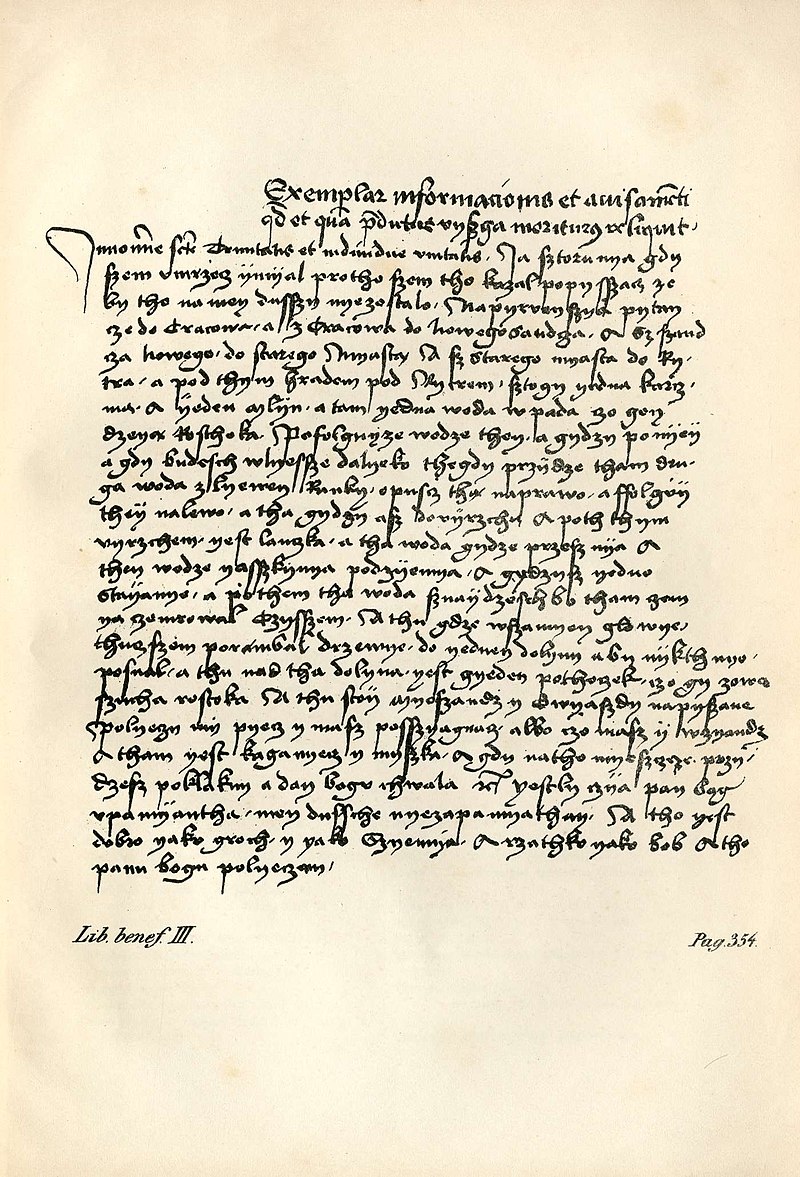 Exemplar informacionis et avisamenti
qd et qua pdictus vyszga moriturus reliquit.
Innomine scte Trinitatis et individue vnitatis. Ja sztoru mya gdy
szem vmrzecz ymyal protho szem tho kazal popysszacz ze
by tho na mey dusszy nyezostalo. Napyrwey szyą pytay
cze do Cracowa. a z Cracowa do Nowegosandga. A sz szand
cza Nowego. do starego Myasta A sz starego myasta do Ry
tra. a pod thym hradem pod Rytrem. sztogy yedna karcz
ma. A yeden mlyn. a tam yedna woda wpada czo gey
dzeyą Rostoka. Pofolguyze wodze they. a gydzy po nyey
a gdy budesch wlyessze dalyeko thegdy przydze tham dru
ga woda z lyewey Ranky. opuscz thą naprawo. a ffolguy
they nalewo. a tha gydzy asz dovyrzchu A poth thym
vyrzchem. yest lanczka. a tha woda gydze przesz nya A
they wodze yasszkynya podzyemya. A gydzysz yedno
stayanye. a pothem tha woda sznaydzesch bo tham zem
ya zemrowal Czysszem. A thu gdze wszamey glowye
thuszszem porambal drzewye. do yedney dolyny aby nykth nye.
posnal. a thu nad tha dolyna. yest gyeden pothoczek. czo gy zowa
szucha rostoka A thu stoy myeszandz y Gwyaszdy napyszane
Spolyczy my pyecz y masz posszyagnacz albo czo masz y wzyandz
A tham yest kaganyecz y myszka. A gdy natho myesscze. przy
dzesz poklakny a day bogu chwala etc yestly czya pan bog
vpamyantha. mey dussche nyezapamyathay. A tho yest
dobro yako groch. y yako Szyemya. A rzathko yako bob A tho
panu bogu polyeczam.
Lib. benef. III.
Pag. 354.